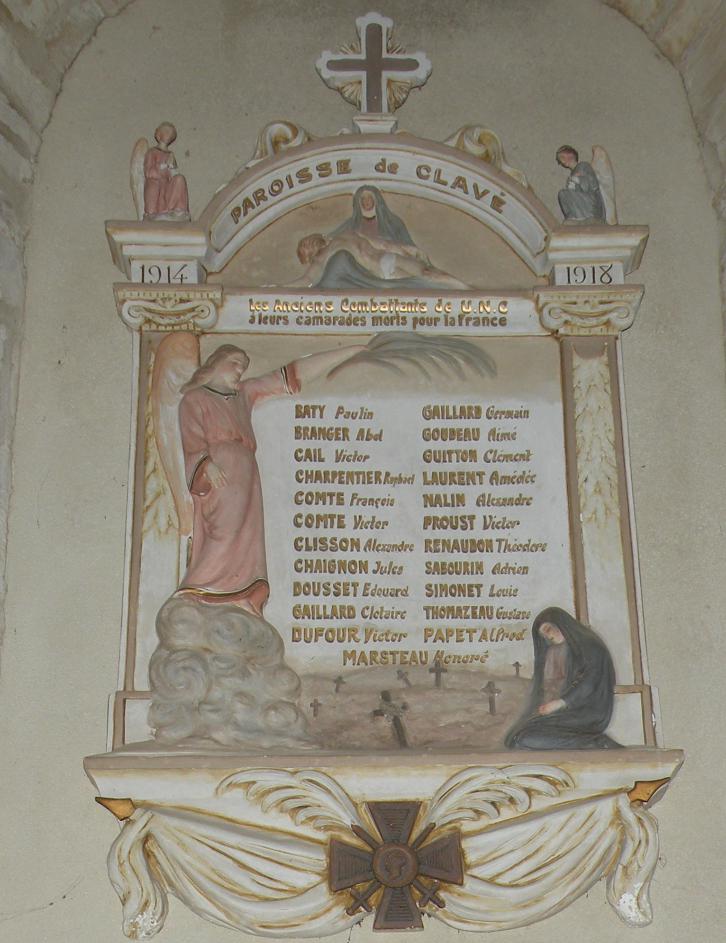 PAROISSE de CLAVÉ
1914 1918
les Anciens Combattants de U.N.C
à leurs camarades morts pour la france
BATY Paulin
BRANGER Abel
CAIL Victor
CHARPENTIER Raphael
COMTE François
COMTE Victor
CLISSON Alexandre
CHAIGNON Jules
DOUSSET Edouard
GAILLARD Clotaire
DUFOUR Victor
GAILLARD Germain
GOUDEAU Aimé
GUITTON Clément
LAURENT Amédée
NALIN Alexandre
PROUST Victor
RENAUDON Théodore
SABOURIN Adrien
SIMONET Louis
THOMAZEAU Gustave
PAPET Alfred
MARSTEAU Honoré